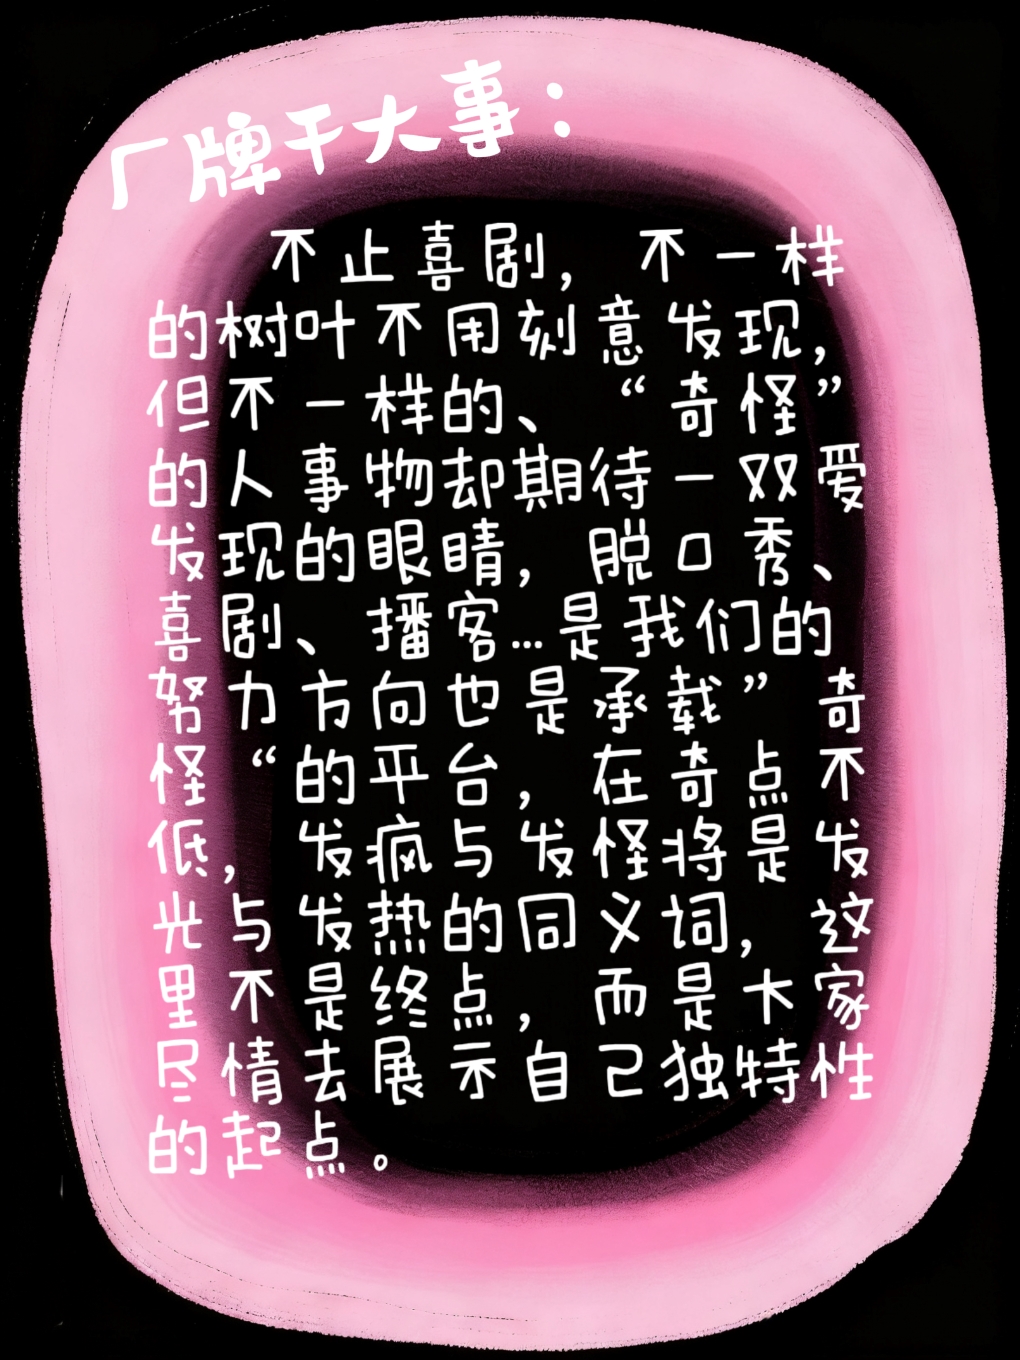 厂牌干大事：
不止喜剧，不一样
的树叶不用刻意发现，
但不一样的、“奇怪”
的人事物却期待一双爱
发现的眼睛，脱口秀、
喜剧、播客…是我们的
努力方向也是承载”奇
怪“的平台，在奇点不
低，发疯与发怪将是发
光与发热的同义词，这
里不是终点，而是大家
尽情去展示自己独特性
的起点。